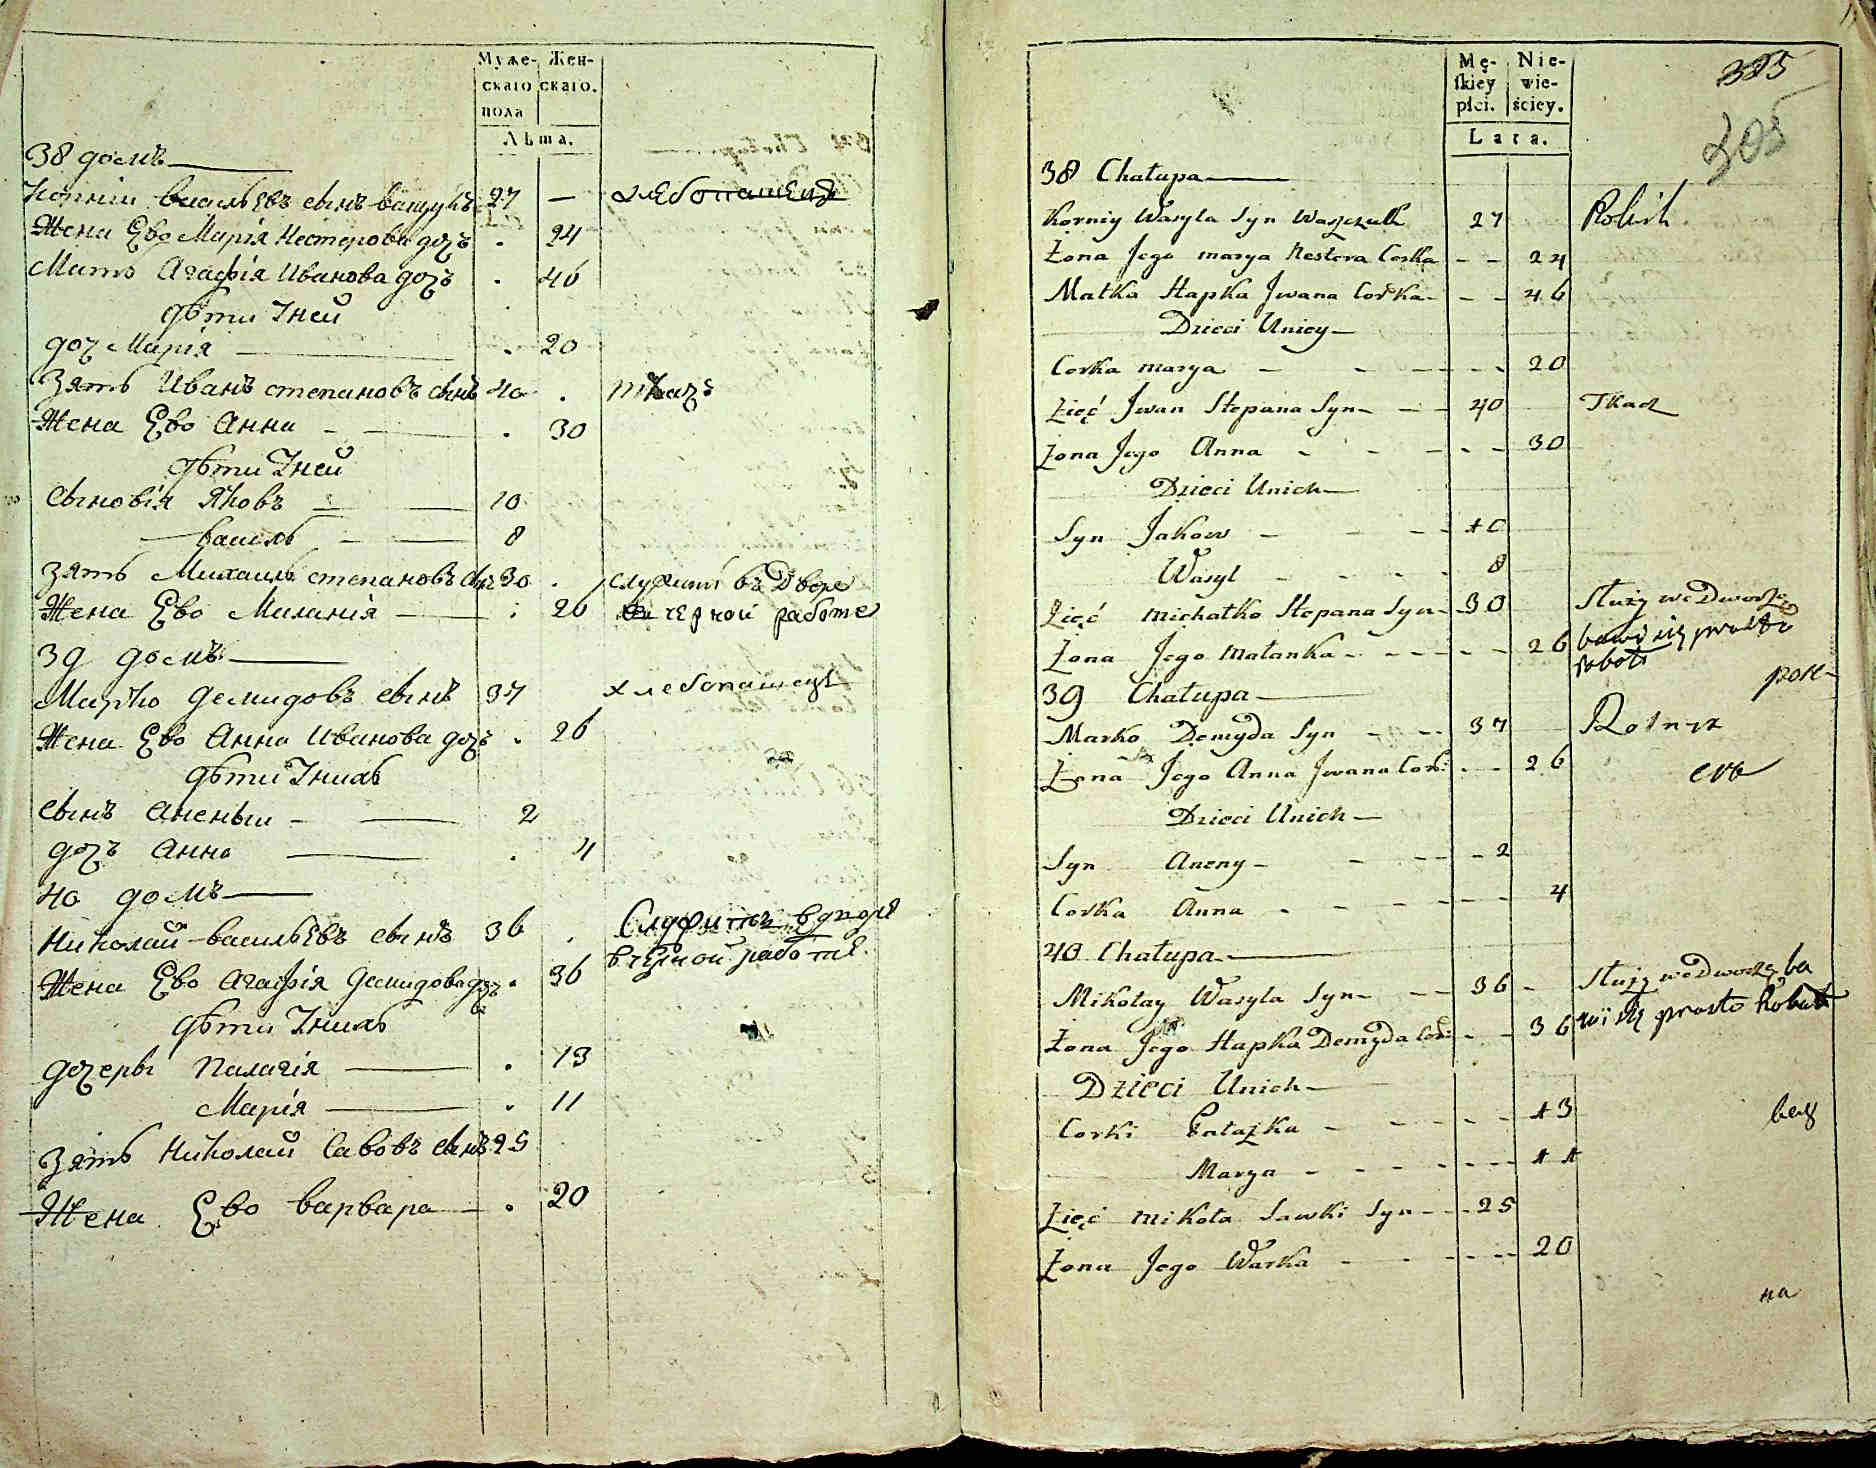 Муже-
скаго
пола
Жен-
скаго.
Лѣта.
38 домъ
Корній васильевъ сынъ ващукъ 27 — хлебопашецъ
Жена Ево Марія Нестерова дочъ . 24
Мать Агафія Иванова дочъ . 46
дѣти Уней
доч Марія . 20
Зять Иванъ степановъ сынъ 40 . ткачъ
Жена Ево Анна . 30
дѣти Уней
сыновія Яковъ 10
василь 8
Зять Михаилъ степановъ 30 . служит въ Дворе
Жена Ево Миланія . 26 черной работе
39 домъ
Марко демидовъ сынъ 37 хлебопашецъ
Жена Ево Анна Иванова дочъ . 26
дѣти Унихъ
сынъ Аненьи 2
дочъ Анна . 4
40 домъ
Николай васильевъ сынъ 36 . Служитъ
Жена Ево Агафія Демидова . 36 в черной работе.
дѣти Унихъ
дочеры Палагія . 13
Марія . 11
Зять Николай Савовъ сынъ 25
Жена Ево варвара . 20
Mę-
skiey
płci.
Nie-
wie-
ściey.
Lata.
325
305
38 Chałupa
Korniy Wasyla Syn Waszczuk 27 Rolnik
Żona Jego marya Nestera Corka 24
Matka Hapka Jwana Corka 46
Dzieci Uniey
Corka marya 20
Zięć Jwan Stepana Syn 40 Tkacz
Żona Jego Anna 30
Dzieci Unich
Syn Jakow 10
Wasyl 8
Zięć michałko Stepana Syn 30 Służy we Dworze
Żona Jego Małanka 26 bawi się prosto
robotą
39 Chałupa
Marko Demyda Syn 37 Rolnik
Żona Jego Anna Jwana Cor: 26
Dzieci Unich
Syn Aneny 2
Corka Anna 4
40 Chałupa
Mikołay Wasyla Syn 36 Służy we Dworze ba
Żona Jego Hapka Demyda Cor: 36 wi się prosto Robotą
Dzieci Unich
Corki Pałażka 13
Marya 11
Zięć mikoła Sawki Syn 25
Żona Jego Warka 20
на